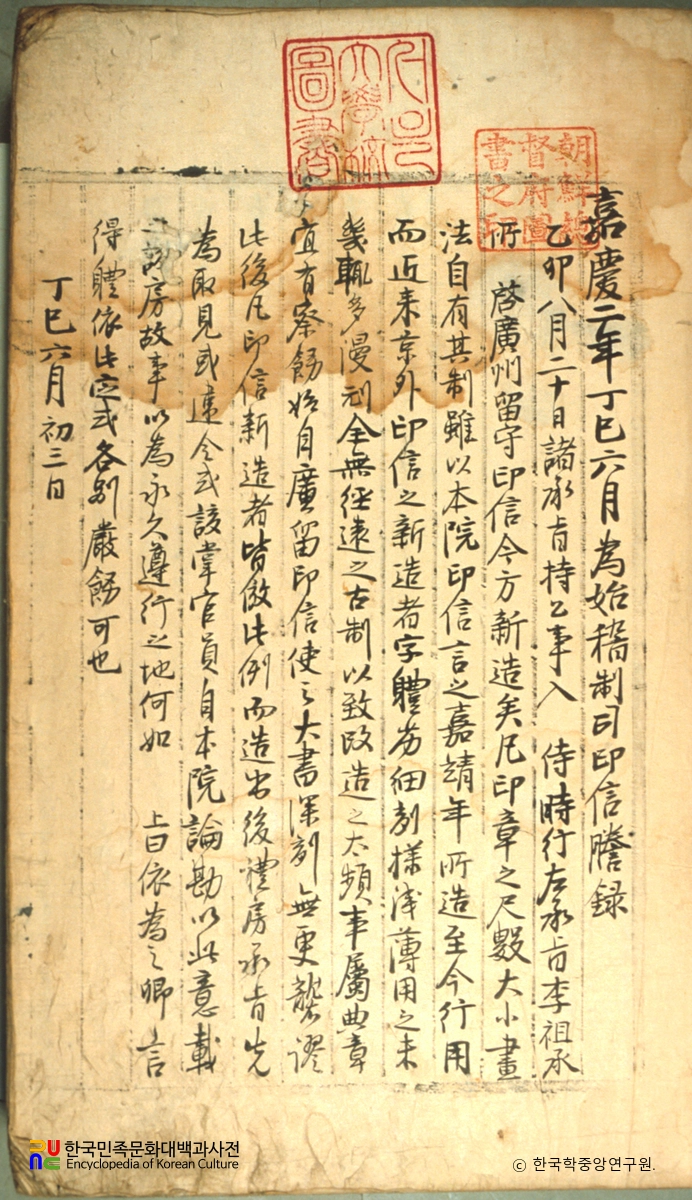 嘉慶二年丁巳六月為始稽制司印信謄録
乙卯八月二十日諸承旨持公事入 侍時行左承旨李祖承
所 啓廣州留守印信今方新造矣凡印章之尺數大小畫
法自有其制雖以本院印信言之嘉靖年所造至今行用
而近来京外印信之新造者字體芴細刻樣浅薄用之未
幾輒多漫刓全無経遠之古制以致改造之太頻事屬典章
宜有察飭始自廣留印信使之大書深刻無更襲謬
此後凡印信新造者皆倣此例而造出後禮房承旨先
為取見或違令式該掌官員自本院論勘以此意載
之 房故事以為永久遵行之地何如 上曰依為之卿言
得體依此定式各別嚴飭可也
丁巳六月初三日
朝鮮総
督府圖
書之印
大學校
圖書
한국민족문화대백과사전
Encyclopedia of Korean Culture
ⓒ 한국학중앙연구원.